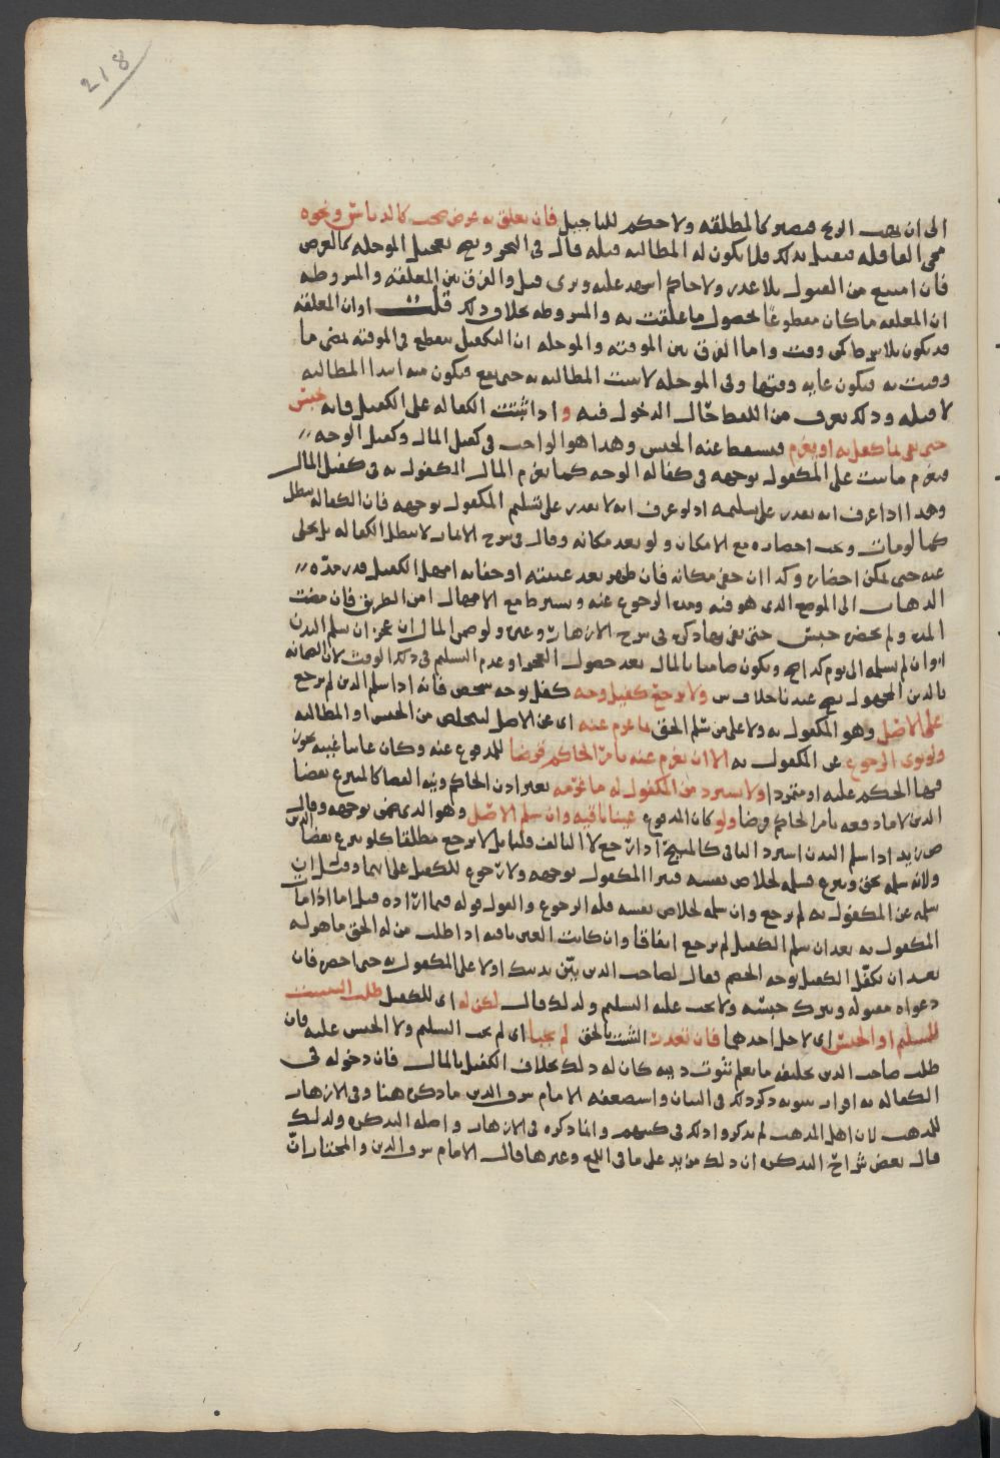 218
الى ان يهب الريح فيصير كالمطلقه ولا حكم للتاجيل فان تعلق به غرض صحت كالدياس ونحوه
العاقله فيعمل بذلك فلا يكون له المطالبه قبله قال في البحر ويصح تعجيل الموجله كالعرض
فان امتنع من القبول بلا عذر ولا حاكم اشهد عليه وبرى قيل والفرق بين المعلقه والمشروطه
ان المعلقه ما كان مقطوعا بحصول ما علقت به والمشروطه بخلاف ذلك قلت او ان المعلقه
قد يكون بلا شرط وقت واما الفرق بين الموقته والموجله ان التكفيل ينقطع في الموقته بمضي ما
وقتت به فيكون غايه وقتها وفي الموجله لا يثبت المطالبه به حتى يقع فيكون منه ابتدا المطالبه
لا قبله وذلك يعرف من اللفظ حال الدخول فيه واذا ثبتت الكفاله على الكفيل فانه حبس
حتى يفي بما كفل به او يغرم فيسقط عنه الحبس وهذا هو الواجب في كفيل المال وكفيل الوجه
فيغرم ما يثبت على المكفول بوجهه في كفاله الوجه كما يغرم المال المكفول به في كفيل المال
وهذا اذا عرف انه يقدر على تسليمه اذ لو عرف انه لا يقدر على تسليم المكفول بوجهه فان الكفاله تبطل
كما لو مات ويجب احضاره مع الامكان ولو بعد مكانه وقال في شرح الاثمار لا تبطل الكفاله بل يخلى
عنه حتى يمكن احضاره وكذا ان خفي مكانه فان ظهر بعد غيبته او خفائه امهل الكفيل قدر مده
الذهاب الى الموضع الذي هو فيه ومده الرجوع عنه ويشترط مع الامهال امن الطريق فان مضت
المده ولم يحضره حبس حتى يفي بهما ذكره في شرح الازهار وغيره ولو ضمن المال ان عجز ان يسلم البدن
او ان لم يسلمه الى يوم كذا صح ويكون ضامنا بالمال بعد حصول العجز او عدم التسليم في ذلك الوقت لان الضمانه
بالدين المجهول يصح عندنا خلاف ش ولا يرجع كفيل وجه كفل بوجه شخص فانه اذا سلم الدين لم يرجع
على الاصل وهو المكفول به ولا على من سلم الحق بما غرم عنه اي عن الاصل ليتخلص من الحبس او المطالبه
ولو نوى الرجوع عن المكفول به الا ان يغرم عنه بامر الحاكم قرضا للمدفوع عنه وكان غائبا غيبه يجوز
فيها الحكم عليه او متمردا ولا يسترد من المكفول له ما غرمه بغير اذن الحاكم ونيه القضا كالمتبرع بقضا
الدين لا ما دفعه بامر الحاكم قرضا ولو كان المدفوع عينا باقيه وان سلم الاصل وهو الذي ضمن بوجهه وقال
ص زيد اذا سلم البدن استرد الباقي كالمبيح اذا رجع لا التالف قلنا بل لا يرجع مطلقا كلو تبرع بقضا الدين
ولانه سلمه بحق وتبرع قبله لخلاص نفسه فيبرا المكفول بوجهه ولا رجوع للكفيل على ايهما وقيل ان
سلمه عن المكفول به لم يرجع وان سلمه لخلاص نفسه فله الرجوع والقول قوله فيما اراده قبل اما اذا مات
المكفول به بعد ان سلم الكفيل لم يرجع اتفاقا وان كانت العين باقيه اذا طلب من له الحق ما هو له
بعد ان تكفل الكفيل بوجه الخصم فقال لصاحب الدين بين بدينك اولا على المكفول به حتى احضره فان
دعواه مقبوله ويترك حبسه ولا يجب عليه التسليم ولذلك قال لكن له اي للكفيل طلب التثبت
للتسليم او الحبس اي لاجل احدهما فان تعذرت التثبت بالحق لم يجبا اي لم يجب التسليم ولا الحبس عليه فان
طلب صاحب الدين تحليفه ما يعلم ثبوت دينه كان له ذلك بخلاف الكفيل بالمال فان دخوله في
الكفاله به اقرار بثبوته ذكر ذلك في البيان واستضعفه الامام شرف الدين ما ذكره هنا وفي الازهار
للمذهب لان اهل المذهب لم يذكروا ذلك في كتبهم وانما ذكره في الازهار واصله التذكره ولذلك
قال بعض شراح التذكره ان ذلك مزيد على ما في اللمع وغيرها قال الامام شرف الدين والمختار ان